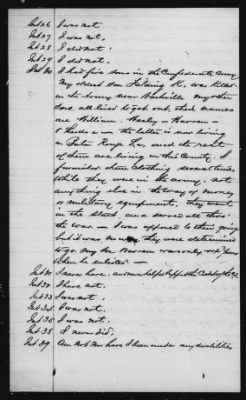 Int 26 I was not.
Int 27 I was not.
Int 28 I did not.
Int 29 I did not.
Int 30 I had five sons in the Confederate Army
My oldest son Fielding R, was killed
in the Army near Nashville My other
sons, all lived to get out, their names
are William, Henry - Warren -
- the latter is now living
in Baton Rouge La, and the rest
of them are living in this County. I
furnished them clothing sometimes
while they were in the army, not
anything else in the way of money
or military equipments, they went
in the start, and served all thro'
the war - I was opposed to their going
but it was no use they were determined
to go. My son Warren was only years
when he enlisted -
Int 31 I never have, and never helped
Int 32 I have not.
Int 33 I was not.
Int 34 I was not.
Int 35 I was not.
Int 38 I never did.
Int 39 Am not nor have I been under any disabilities